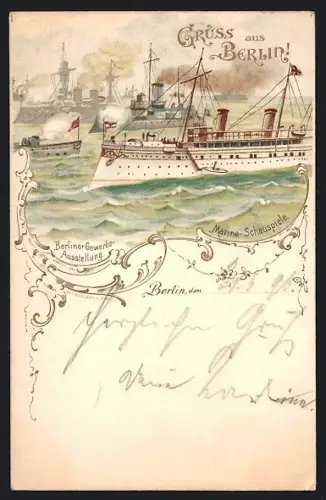 Gruss aus
Berlin!
Berliner-Gewerbe-
Ausstellung
Marine-Schauspiele.
Berlin, den
Herzliche Gruß